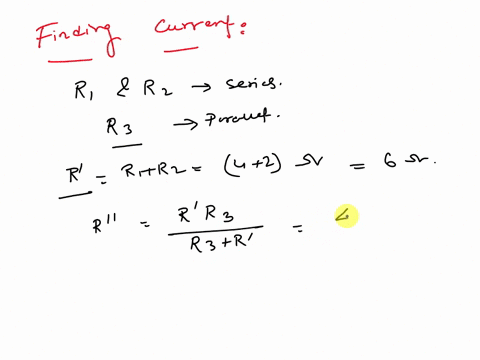 Finding Current:
R1 & R2 → series.
R3 → Parallel.
R' = R1+R2 = (4+2) Ω = 6 Ω.
R'' = R'R3 / R3+R' =